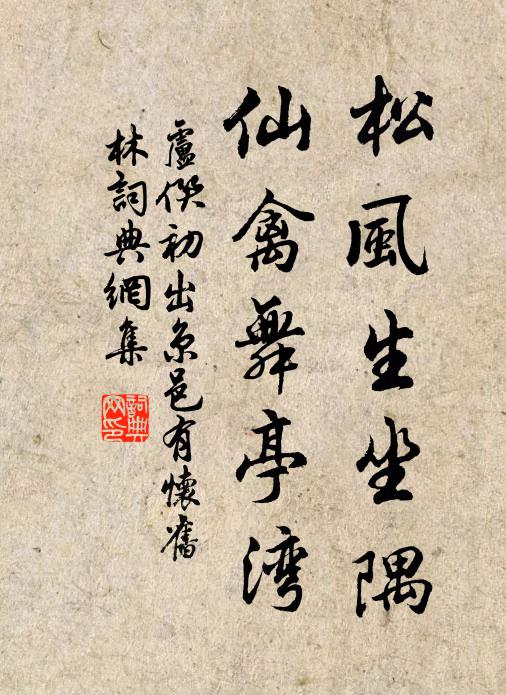 松風生坐隅
仙禽舞亭湾
盧僎初出京邑有懷舊
林詞典網集
詞典网印